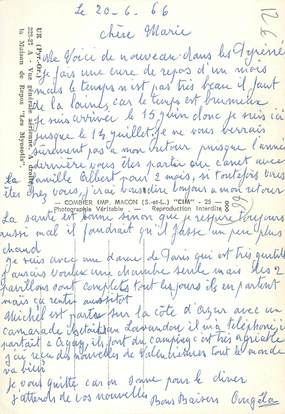 Le 20-6-66
chère Marie
Me Voici de nouveau dans les Pyrénées
Je fais une cure de repos d'un mois
mais le temps n'est pas très beau il faut
de la laine, car le temps est brumeux
Je suis arriver le 15 juin donc je suis ici
jusque le 14 juillet. je ne vous verrais
sûrement pas a mon retour puisque l'année
dernière vous êtes partie au canet avec
la famille Albert pour 2 mois, si toutefois vous
êtes chez vous, j'irai vous dire bonjour a mon retour
La santé est bonne sinon que je respire toujours
aussi mal il faudrait qu'il fasse un peu plus
chaud
Je suis avec une dame de Paris qui est très gentille
J'aurais voulue une chambre seule mais les 2
pavillons sont complets tous les jours ils en partent
mais ça rentre aussitot
Michel est partie sur la côte d'azur avec un
camarade il était au Lavandou il m'a téléphoné, il
partait a Agay, ils font du camping c'est très agréable
j'ai reçu des nouvelles de Valenciennes tout le monde
va bien
Je vous quitte car on sonne pour le diner
J'attends de vos nouvelles
Bons Baisers Angela
UR (Pyr.-Or.)
225-27 A - Vue générale aérienne. A droite,
la Maison de Repos "Les Myosotis"
COMBIER IMP. MACON (S.-et-L.) "CIM"
Photographie Véritable - Reproduction Interdite